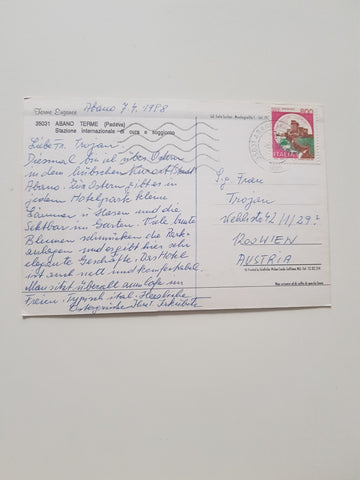 Terme Euganee
35031 ABANO TERME (Padova)
Stazione internazionale di cura e soggiorno
Abano 7.4.1988
Liebe Fr. Trojan!
Diesmal bin ich über Ostern
in dem hübschen Kurort
Abano. Für Ostern gibt es in
jedem Hotelpark kleine
Lämmer u. Hasen und die
Sektbar im Garten. Viele bunte
Blumen schmücken die Park-
anlagen und es gibt hier sehr
elegante Geschäfte. Das Hotel
ist auch nett und komfortabel.
Man sitzt überall am Cafe im
Freien. Typisch ital. Herzliche
Ostergrüsse Ihre
ITALIA
S.g. Frau
Trojan
42/1/29
1200 WIEN
AUSTRIA